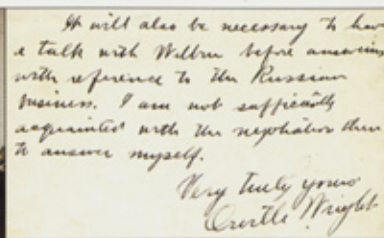 It will also be necessary to have
a talk with Wilbur before answering
with reference to the Russian
business. I am not sufficiently
acquainted with the negotiations there
to answer myself.
Very truly yours
Orville Wright